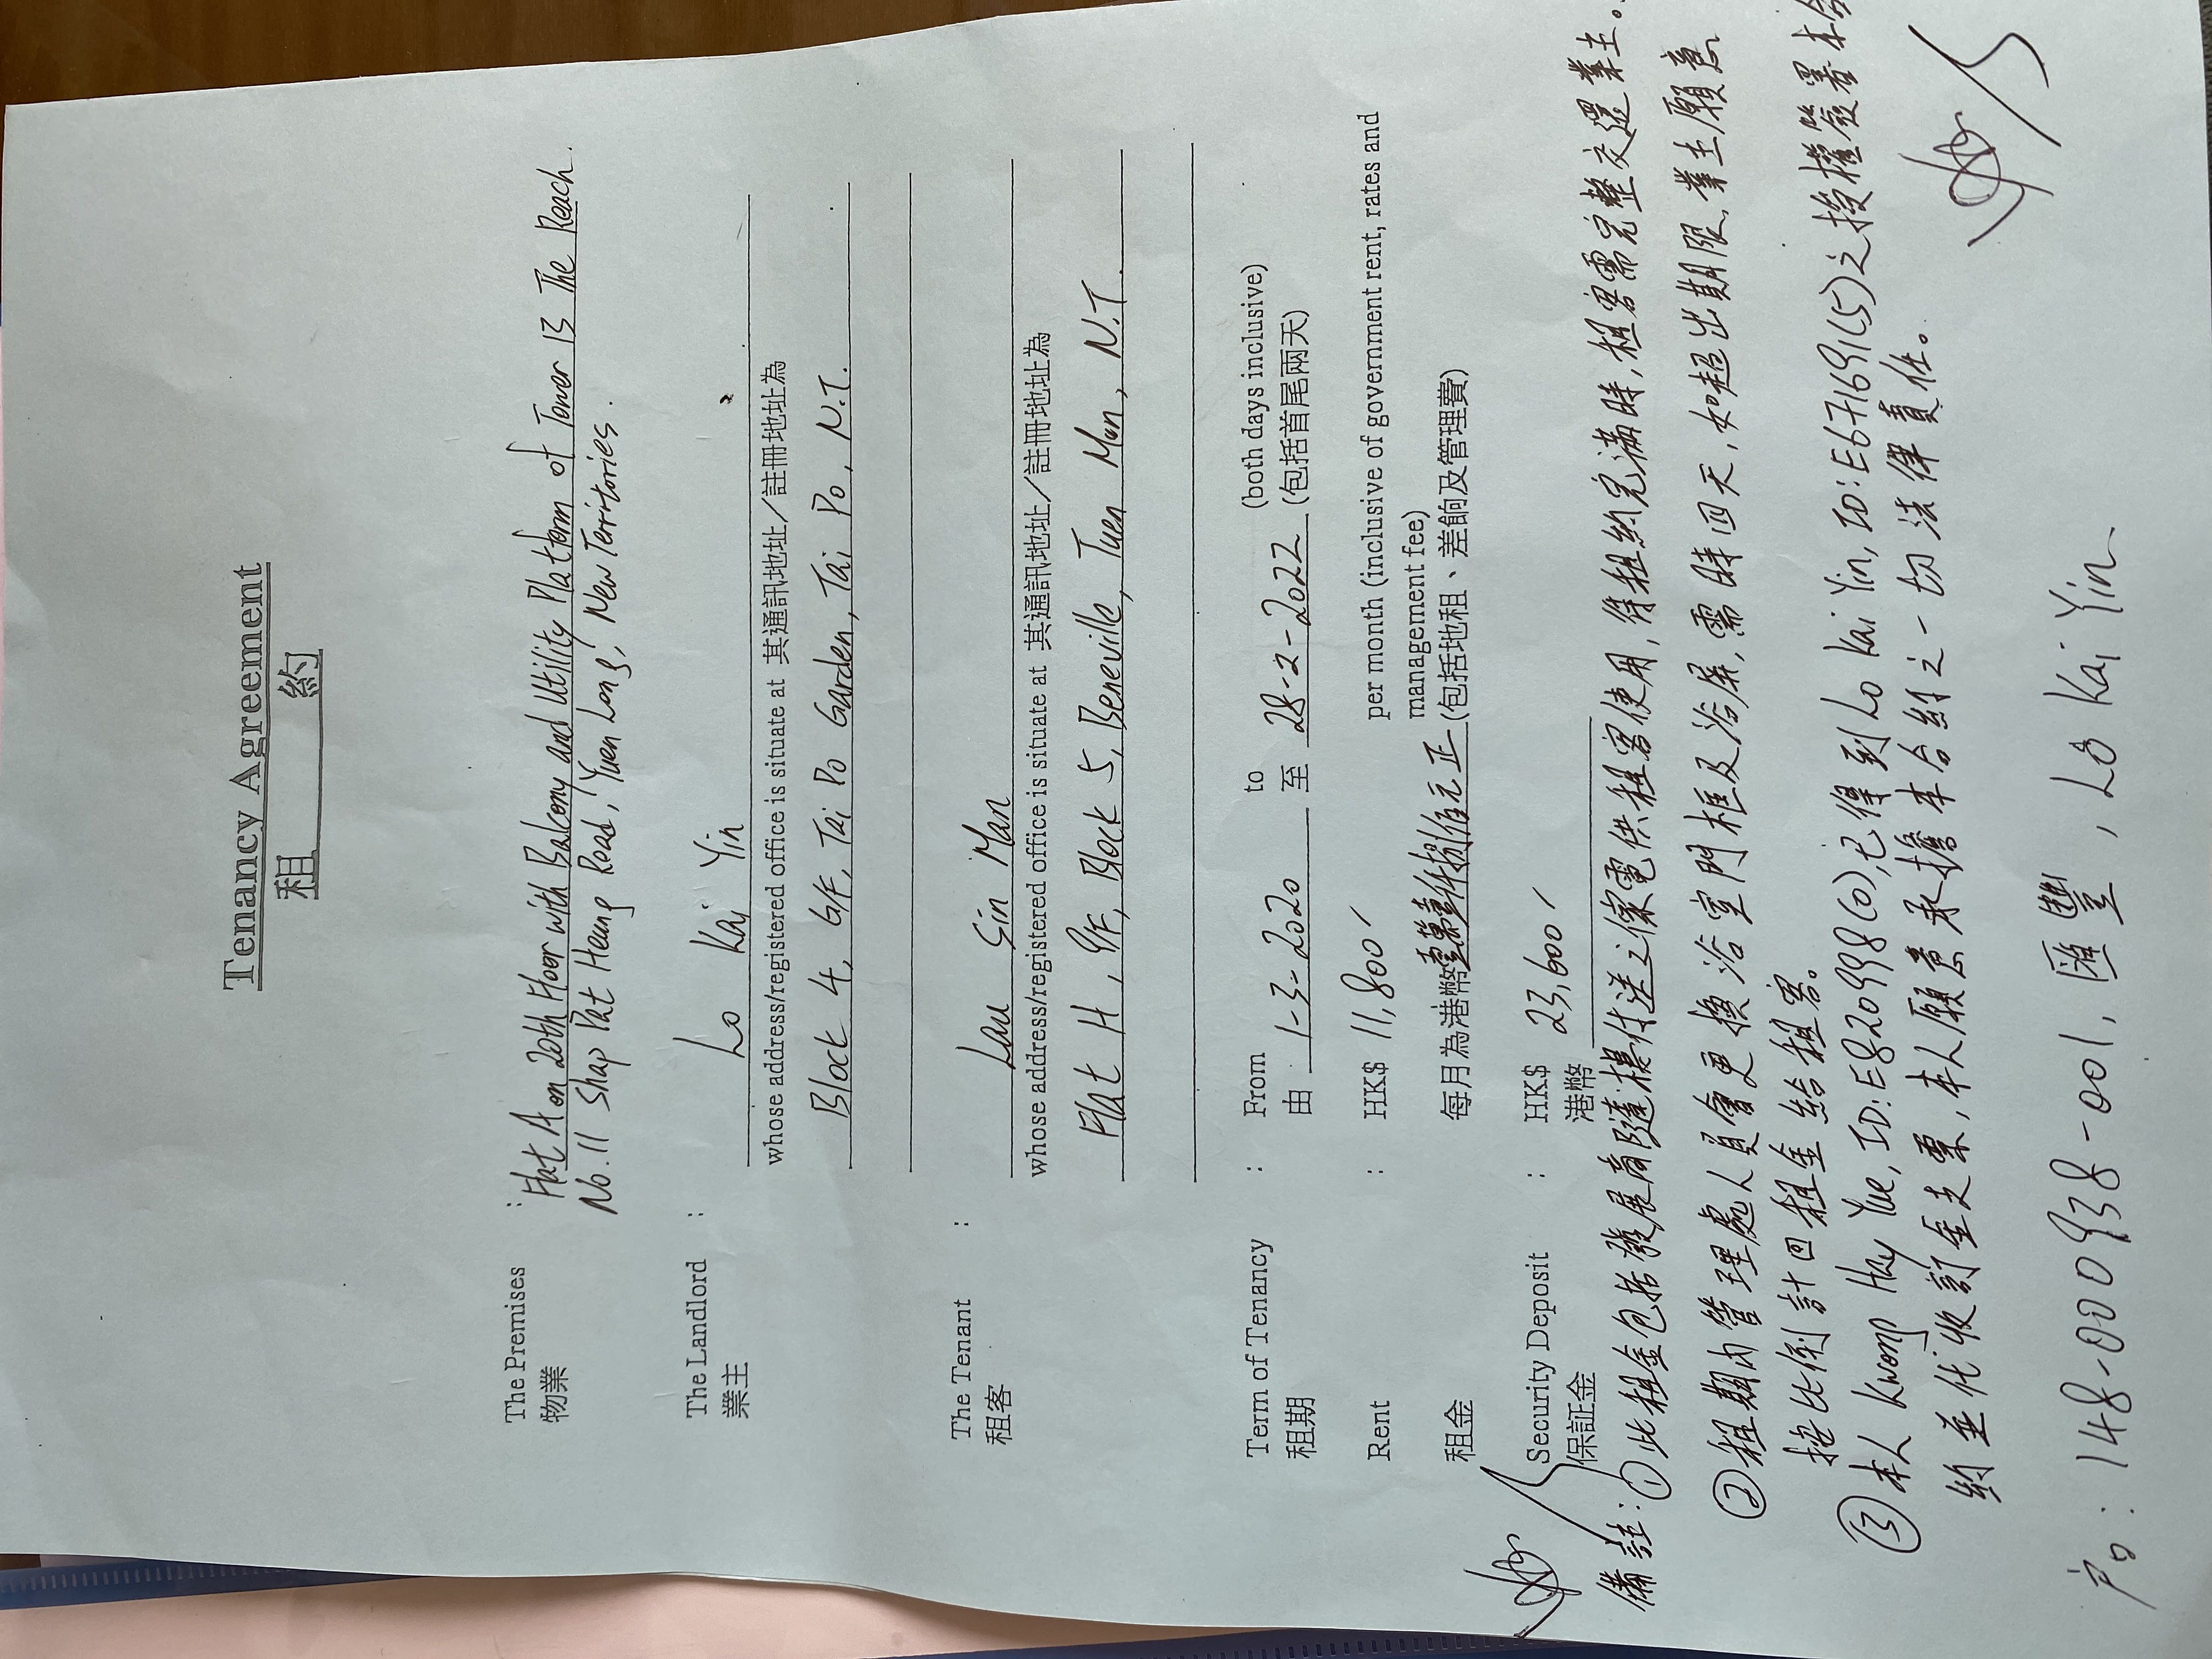 Tenancy Agreement
租 約
The Premises : Flat A on 20th Floor with Balcony and Utility Platform of Tower 13 The Reach.
物業 No. 11 Shap Pat Heung Road, Yuen Long, New Territories.
The Landlord : Lo Kai Yin
業主
whose address/registered office is situate at 其通訊地址/註冊地址為
Block 4, G/F, Tai Po Garden, Tai Po, N.T.
The Tenant : Lau Sin Man
租客
whose address/registered office is situate at 其通訊地址/註冊地址為
Flat H, 9/F, Block 5, Beneville, Tuen Mun, N.T.
Term of Tenancy : From 1-3-2020 to 28-2-2022 (both days inclusive)
租期 由 至 (包括首尾兩天)
Rent : HK$ 11,800 per month (inclusive of government rent, rates and
management fee)
租金 每月為港幣壹萬壹仟捌佰元正(包括地租、差餉及管理費)
Security Deposit : HK$ 23,600
保証金 港幣
備註:① 此租金包括發展商隨樓付送之傢電供租客使用,待租約完滿時,租客需完整交還業主。
② 租期內管理處人員會更換浴室門框及浴屏,需時四天,如超出期限,業主願意
按比例計回租金給租客。
③ 本人 Kwong Hay Yue, ID: E820998(0),已得到 Lo Kai Yin, ID: E671691(5)之授權簽署本合
約並代收訂金支票,本人願意承擔本合約之一切法律責任。
户口: 148-000938-001, 匯豐, Lo Kai Yin